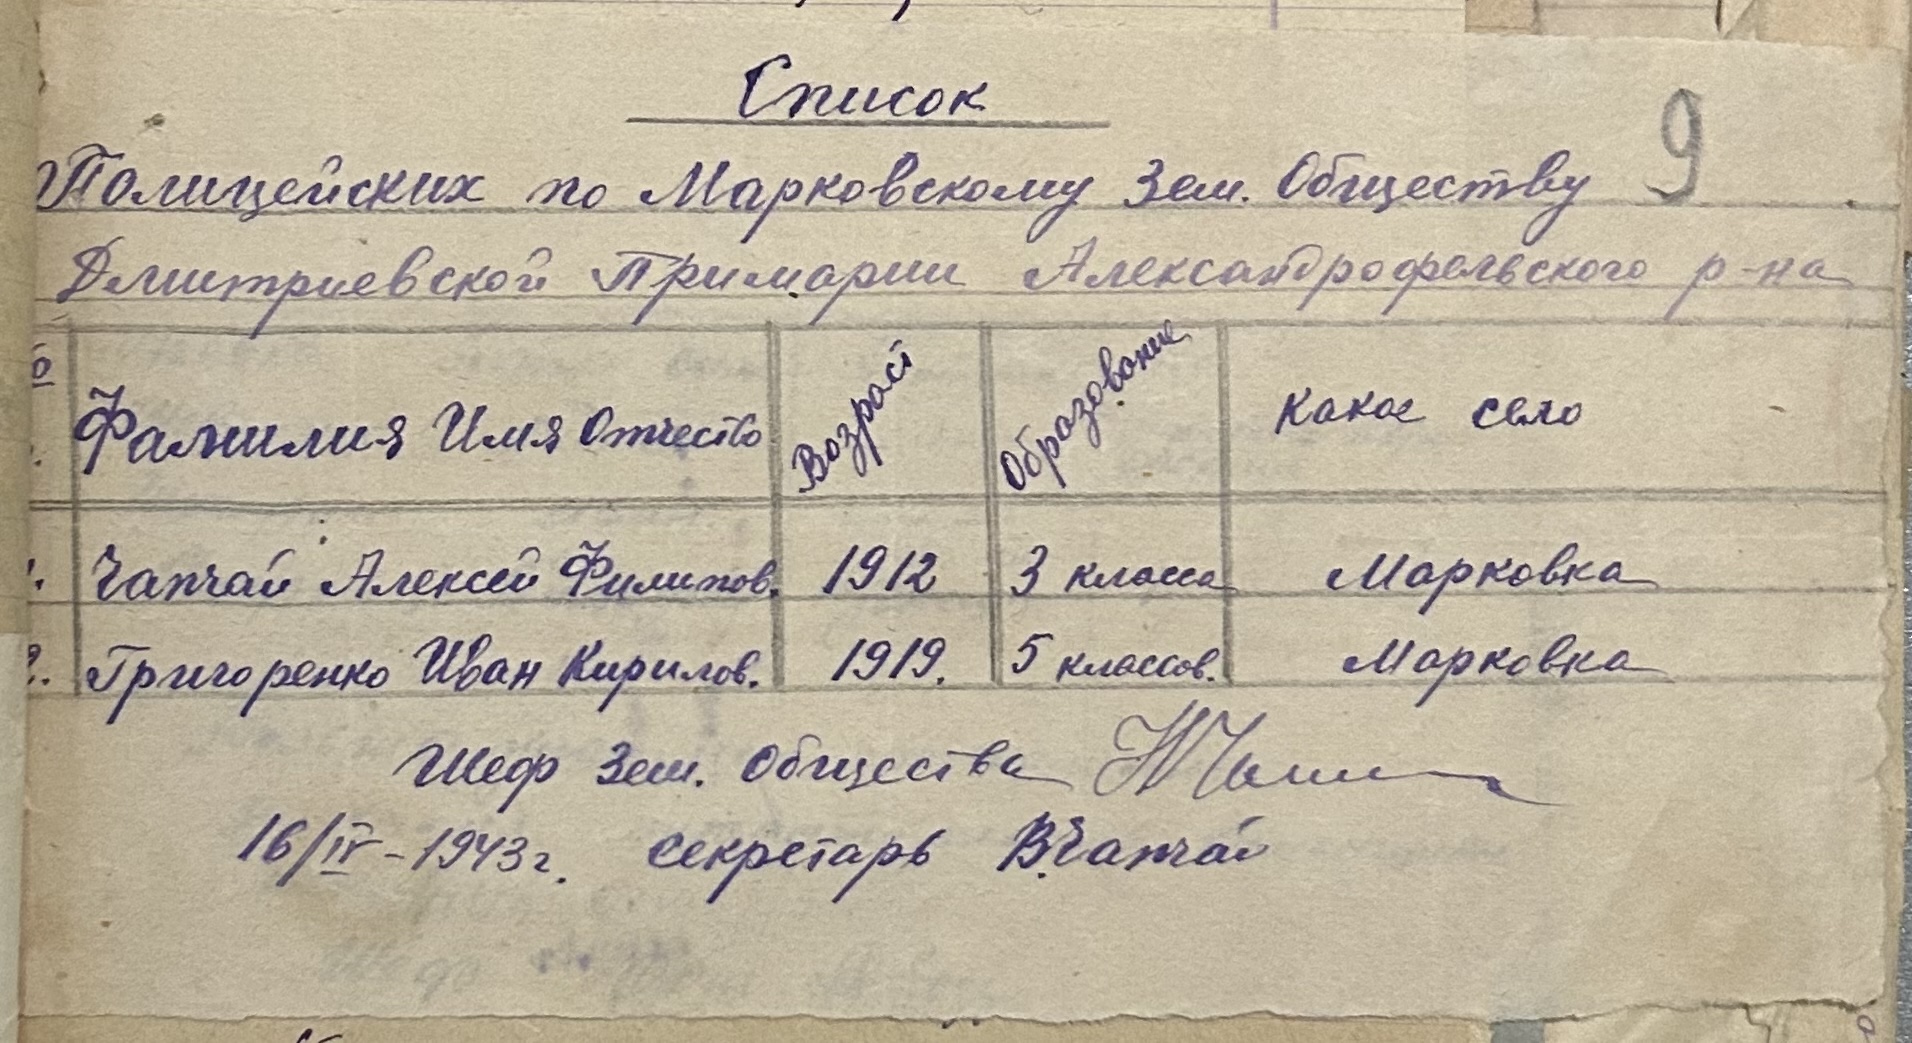 Список
9
Полицейских по Марковскому Зем. Обществу
Дмитриевской Примарии Александрофельского р-на
Фамилия Имя Отчество Возраст Образование Какое село
1. Чапчай Алексей Филипов. 1912 3 класса Марковка
2. Григоренко Иван Кирилов. 1919. 5 классов. Марковка
Шеф Зем. Общества
16/IV-1943г. секретарь В.Чапчай